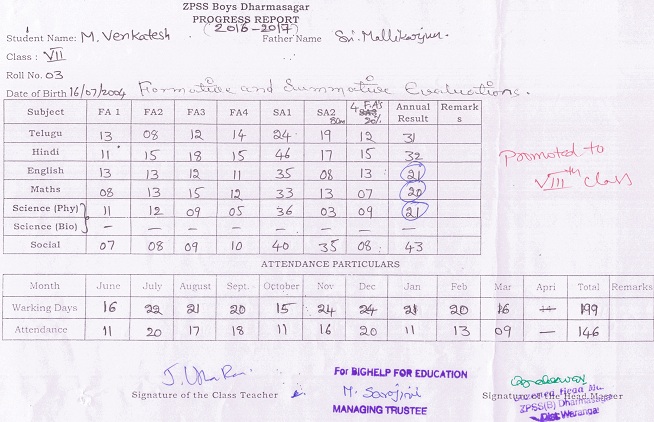 ZPSS Boys Dharmasagar
PROGRESS REPORT
(2016-2017)
Student Name: M. Venkatesh Father Name Sri. Mallikarjun.
Class : VII
Roll No. 03
Date of Birth 16/07/2004 Formative and Summative Evaluations.
Subject FA 1 FA2 FA3 FA4 SA1 SA2 80m 4 FA's SA3 20% Annual Result Remarks
Telugu 13 08 12 14 24 19 12 31
Hindi 11 15 18 15 46 17 15 32
English 13 13 12 11 35 08 13 21
Maths 08 13 15 12 33 13 07 20
Science (Phy) 11 12 09 05 36 03 09 21
Science (Bio) — — — — — — — —
Social 07 08 09 10 40 35 08 43
Promoted to
VIIIth class
ATTENDANCE PARTICULARS
Month June July August Sept. October Nov Dec Jan Feb Mar Apri Total Remarks
Warking Days 16 22 21 20 15 24 24 21 20 16 — 199
Attendance 11 20 17 18 11 16 20 11 13 09 — 146
For BIGHELP FOR EDUCATION
M. Sarojini
MANAGING TRUSTEE
Signature of the Class Teacher
Signature of the Head Master
ZPSS(B) Dharmasagar
Dist Warangal